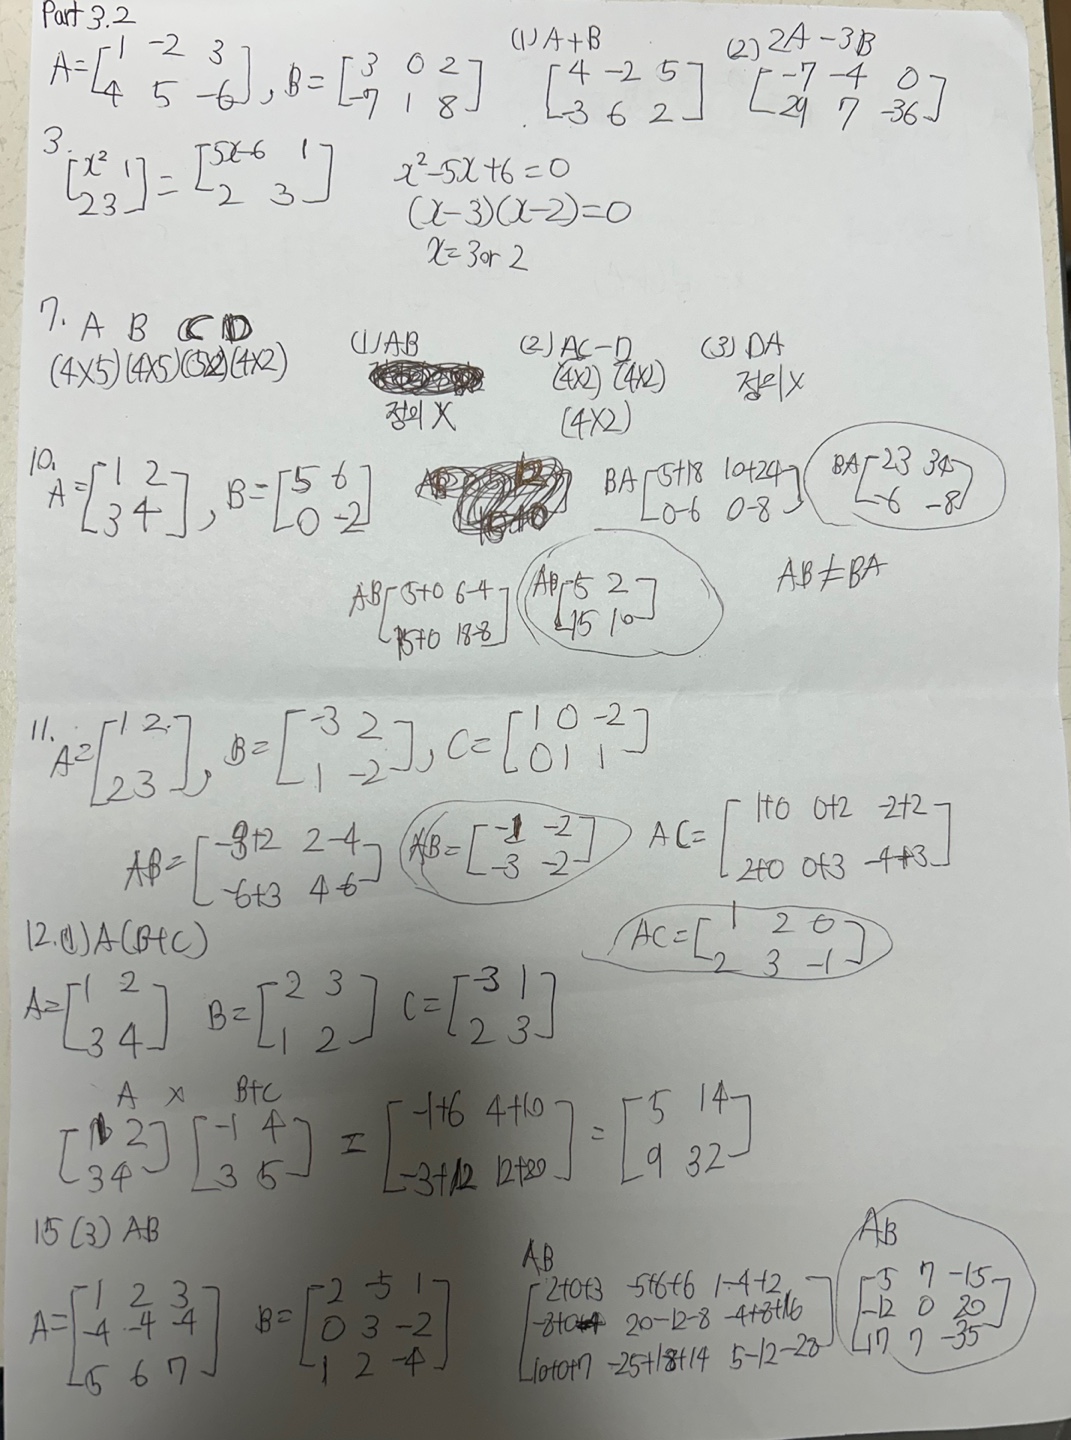 Part 3.2
A=[1 -2 3 / 4 5 -6], B=[3 0 2 / -7 1 8]
(1) A+B
[4 -2 5 / -3 6 2]
(2) 2A-3B
[-7 -4 0 / 29 7 -36]
3.
[x² 1 / 2 3] = [5x-6 1 / 2 3]
x²-5x+6=0
(x-3)(x-2)=0
x=3 or 2
7. A B C D
(4×5)(4×5)(5×2)(4×2)
(1) AB
정의 X
(2) AC-D
(4×2) (4×2)
(4×2)
(3) DA
정의 X
10.
A=[1 2 / 3 4], B=[5 6 / 0 -2]
BA[5+18 10+24 / 0-6 0-8]
BA[23 34 / -6 -8]
AB[5+0 6-4 / 15+0 18-8]
AB[5 2 / 15 10]
AB≠BA
11.
A=[1 2 / 2 3], B=[-3 2 / 1 -2], C=[1 0 -2 / 0 1 1]
AB=[-3+2 2-4 / -6+3 4-6]
AB=[-1 -2 / -3 -2]
AC=[1+0 0+2 -2+2 / 2+0 0+3 -4+3]
AC=[1 2 0 / 2 3 -1]
12. (1) A(B+C)
A=[1 2 / 3 4] B=[2 3 / 1 2] C=[-3 1 / 2 3]
A × B+C
[1 2 / 3 4] [-1 4 / 3 5] = [-1+6 4+10 / -3+12 12+20] = [5 14 / 9 32]
15 (3) AB
A=[1 2 3 / -4 -4 -4 / 5 6 7] B=[2 -5 1 / 0 3 -2 / 1 2 -4]
AB
[2+0+3 -5+6+6 1-4+2 / -8+0-4 20-12-8 -4+8+16 / 10+0+7 -25+18+14 5-12-28]
AB
[5 7 -15 / -12 0 20 / 17 7 -35]